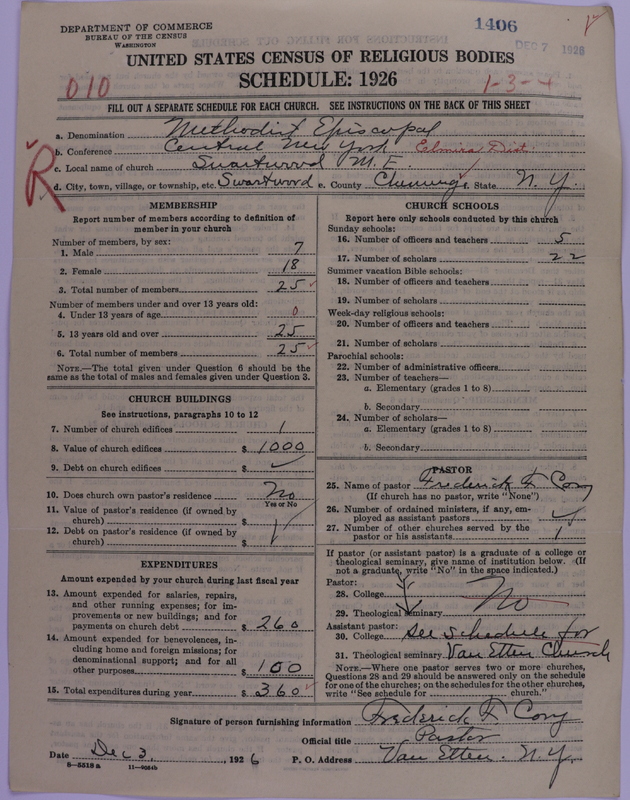 DEPARTMENT OF COMMERCE
BUREAU OF THE CENSUS
WASHINGTON
1406
DEC 7 1926
UNITED STATES CENSUS OF RELIGIOUS BODIES
SCHEDULE: 1926
010
1-3-4
FILL OUT A SEPARATE SCHEDULE FOR EACH CHURCH. SEE INSTRUCTIONS ON THE BACK OF THIS SHEET
R
a. Denomination Methodist Episcopal
b. Conference Central New York Elmira Dist.
c. Local name of church Swartwood M. E.
d. City, town, village, or township, etc. Swartwood e. County Chemung f. State N. Y.
MEMBERSHIP
Report number of members according to definition of member in your church
Number of members, by sex:
1. Male 7
2. Female 18
3. Total number of members 25
Number of members under and over 13 years old:
4. Under 13 years of age 0
5. 13 years old and over 25
6. Total number of members 25
NOTE.—The total given under Question 6 should be the same as the total of males and females given under Question 3.
CHURCH BUILDINGS
See instructions, paragraphs 10 to 12
7. Number of church edifices 1
8. Value of church edifices $ 1000
9. Debt on church edifices $
10. Does church own pastor's residence No
Yes or No
11. Value of pastor's residence (if owned by church) $
12. Debt on pastor's residence (if owned by church) $
EXPENDITURES
Amount expended by your church during last fiscal year
13. Amount expended for salaries, repairs, and other running expenses; for improvements or new buildings; and for payments on church debt $ 260
14. Amount expended for benevolences, including home and foreign missions; for denominational support; and for all other purposes $ 100
15. Total expenditures during year $ 360
CHURCH SCHOOLS
Report here only schools conducted by this church
Sunday schools:
16. Number of officers and teachers 5
17. Number of scholars 22
Summer vacation Bible schools:
18. Number of officers and teachers
19. Number of scholars
Week-day religious schools:
20. Number of officers and teachers
21. Number of scholars
Parochial schools:
22. Number of administrative officers
23. Number of teachers—
a. Elementary (grades 1 to 8)
b. Secondary
24. Number of scholars—
a. Elementary (grades 1 to 8)
b. Secondary
PASTOR
25. Name of pastor Frederick F. Cory
(If church has no pastor, write "None")
26. Number of ordained ministers, if any, employed as assistant pastors
27. Number of other churches served by the pastor or his assistants 1
If pastor (or assistant pastor) is a graduate of a college or theological seminary, give name of institution below. (If not a graduate, write "No" in the space indicated.)
Pastor:
28. College No
29. Theological seminary
Assistant pastor:
30. College See schedule for
31. Theological seminary Van Etten Church
NOTE.—Where one pastor serves two or more churches, Questions 28 and 29 should be answered only on the schedule for one of the churches; on the schedules for the other churches, write "See schedule for church."
Signature of person furnishing information Frederick F. Cory
Official title Pastor
Date Dec 3, 1926 P. O. Address Van Etten. N. Y.